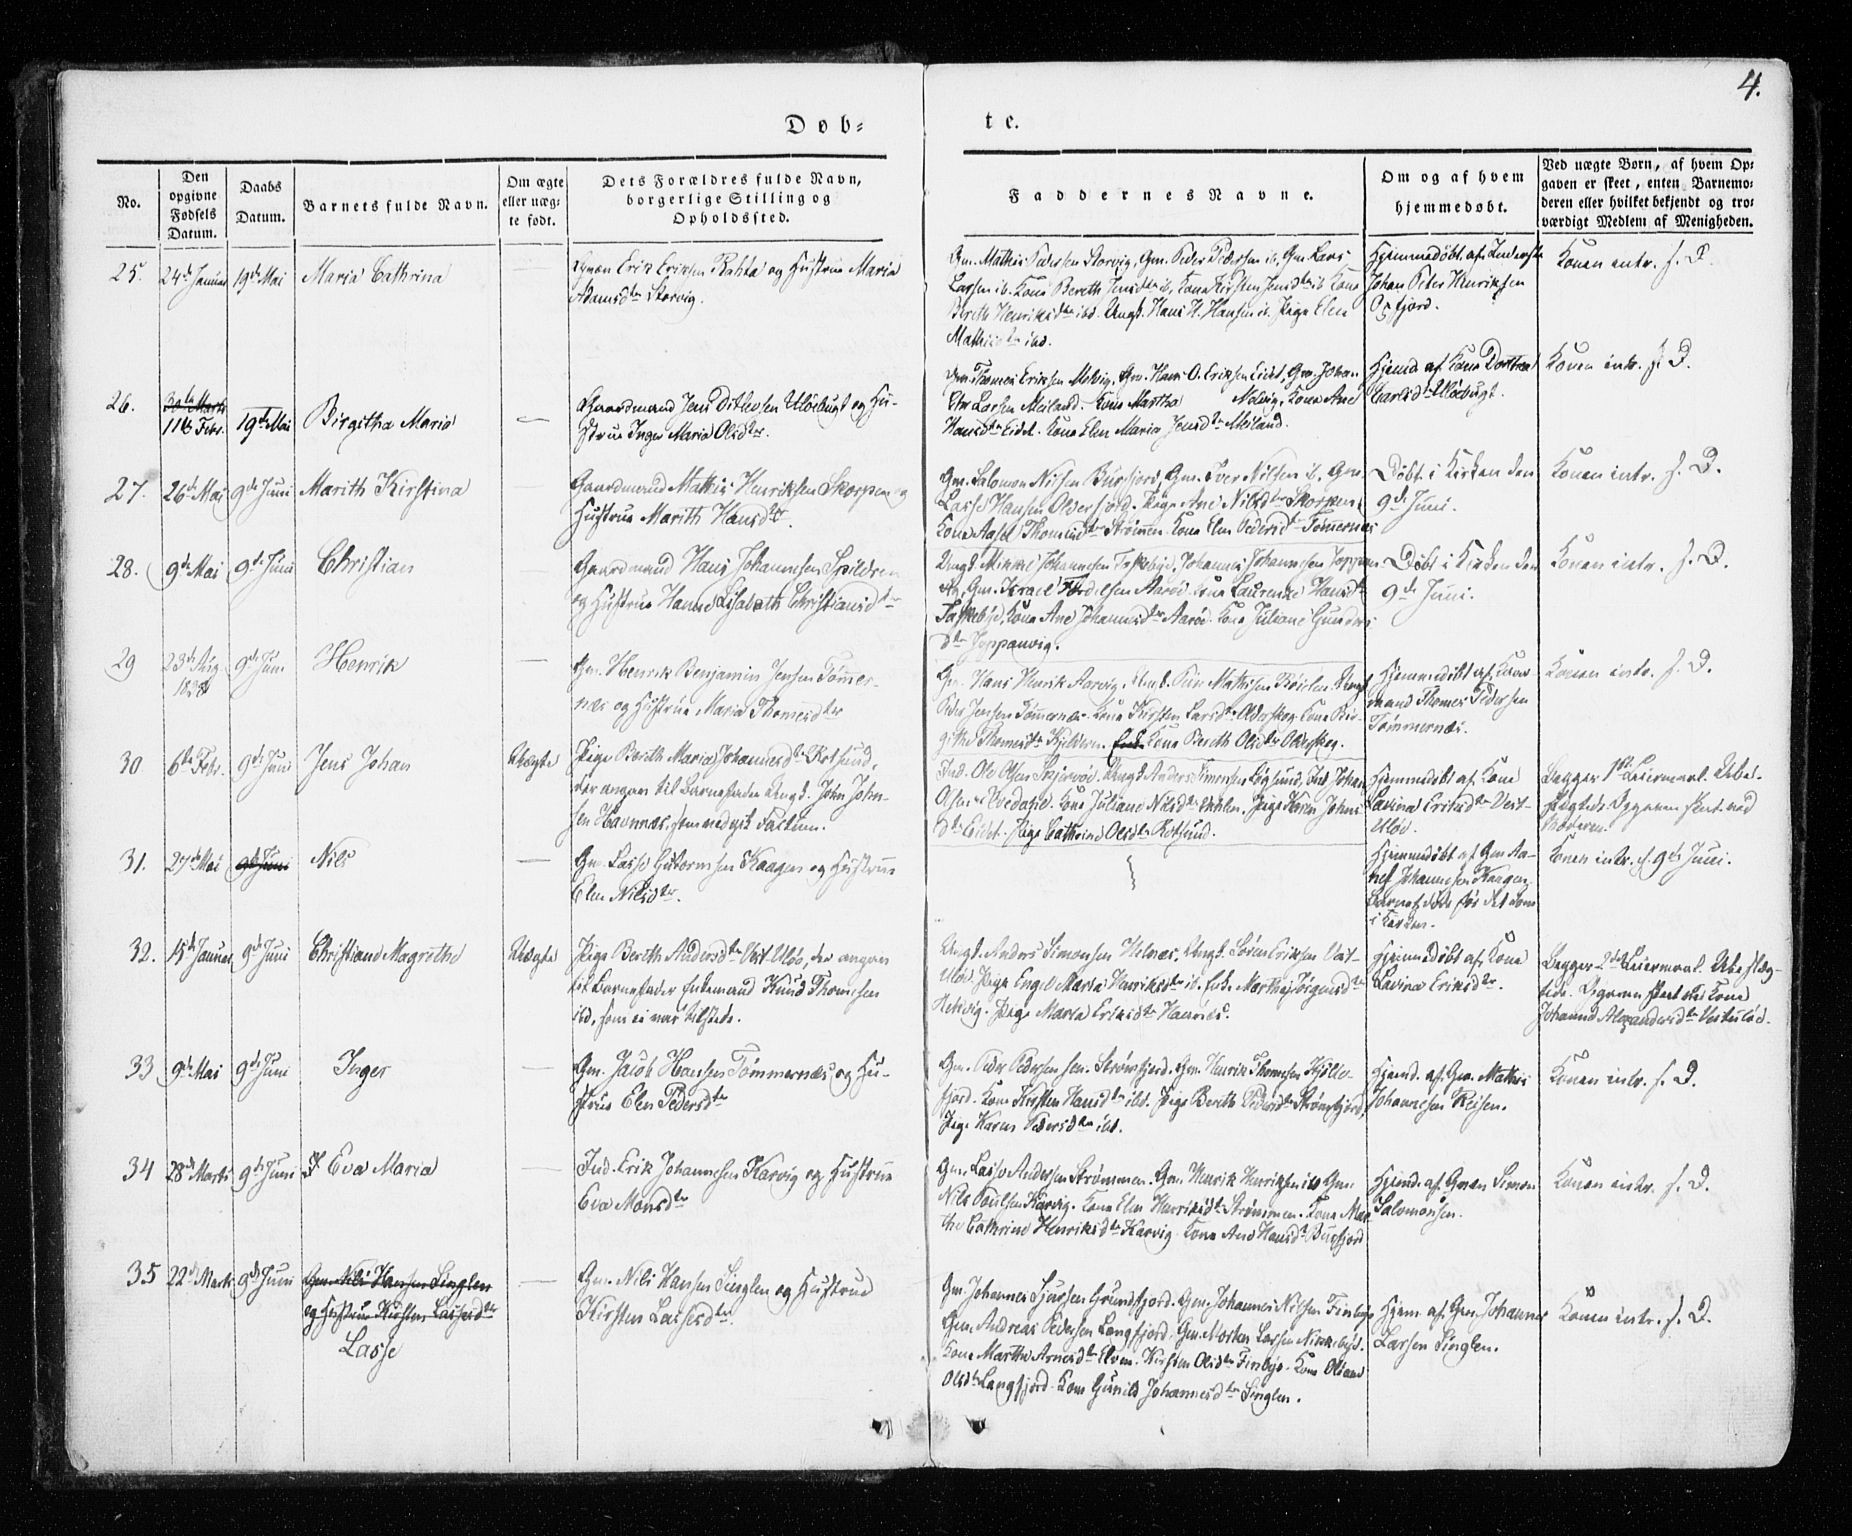 4.
Døb-
te.
No.
Den
opgivne
Fødsels
Datum.
Daabs
Datum.
Barnets fulde Navn.
Om ægte
eller uæg-
te født.
Dets Forældres fulde Navn,
borgerlige Stilling og
Opholdssted.
Faddernes Navne.
Om og af hvem
hjemmedøbt.
Ved uægte Børn, af hvem Op-
gaven er skeet, enten Barnemo-
deren eller hvilket bekjendt og tro-
værdigt Medlem af Menigheden.
25 24de Januar 19de Mai Maria Cathrina
Erik Eriksen og Hustrue Maria
Adamsdtr Storvig.
Gm. Mathis Pedersen Storvig, Gm. Peder Pedersen ib. Gm. Lars
Larsen ib. Kone Bereth Jensdtr ib. Kone Kirsten Jensdtr ib Kone
Bereth Henriksdtr ibd. Ungk. Hans H. Hansen ib. Pige Elen
Mathisdtr ibd.
Hjemmedøbt af Inderste
Johan Peter Henriksen
Oxfjord.
Konen intr. s. D.
26. 30te Marts
11te Febr. 19de Mai Birgitha Maria —
Gaardmand Jens Ditlevsen Uløebugt og Hu-
strue Inger Maria Olsdtr.
Gm. Thomas Eriksen Molvig, Gm. Hans O. Eriksen Eidet, Gm. Johan
Larsen Meiland. Kone Martha Molvig, Kone Ane
Hansdtr Eidet. Kone Elen Maria Jensdtr Meiland.
Hjemd. af Kone Dorthea
Carlsdtr Uløebugt.
Konen intr. s. D.
27. 26de Mai 9de Juni Marith Kirstina —
Gaardmand Mathis Henriksen Skorpen og
Hustrue Marith Hansdtr.
Gm. Salomon Nilsen Burfjord, Gm. Iver Nilsen ib. Gm.
Lasse Hansen Olderfjord. Pige Ane Nilsdtr Skorpen,
Kone Aasel Thomasdtr Strømen. Kone Elen Pedersdtr Tømernæs
Døbt i Kirken den
9de Juni.
Konen intr. s. D.
28. 9de Mai 9de Juni Christian —
Gaardmand Hans Johannesen Spildren
og Hustrue Hanne Lisabeth Christiansdtr
Ungk. Mikkel Johannesen Taskebye, Johannes Johannesen Joppan-
vig, Gm. Israel Aarøe. Kone Laurense Hansdtr
Taskebye, Kone Ane Johannesdtr Aarøe. Kone Juliane Gunders
dtr Joppanvig.
Døbt i Kirken den
9de Juni.
Konen intr. s. D.
29 23de Aug.
1828 9de Juni Henrik —
Gm. Henrik Benjamin Jensen Tømer-
næs og Hustrue Maria Thomesdtr
Gm. Hans Henrik Aarvig, Ungk. Peder Mathisen Ungk.
Peder Jensen Tømernæs. Kone Kirsten Larsdtr Olderskog. Kone Bir-
githe Thomesdtr Kjelderen. Enke Kone Bereth Olsdtr Olderskog.
Hjemmedøbt af Kaar
mand Thomes Pedersen
Tømmernæs.
Konen intr. s. D.
30. 6te Febr. 9de Juni Jens Johan Uægte
Pige Bereth Maria Johannesdtr Rotsund,
der angav til Barnefader Ungk. John John-
sen Havnnæs, som vedgik Factum.
Ind. Ole Olsen Skjervøe. Ungk. Anders Simonsen Ind. Johan
Olsen Kone Juliane Nilsdtr Pige Karen Johns
dtr Eidet. Pige Cathrine Olsdtr Rotsund.
Hjemmedøbt af Kone
Lavina Eriksdtr Vest-
Uløe.
Begges 1ste Leiermaal. Ubes-
lægtede. Opgaven skeet ved
Moderen.
31. 27de Mai 9de Juni Nils —
Gm. Lasse Guttormsen Kaagen og Hustrue
Elen Nilsdtr.
Hjemmedøbt af Gm. Aa-
nes Johannesen Kaagen.
Barnet døde før det kom
i Kirken.
Konen intr. d. 9de Juni.
32. 15de Januar 9de Juni Christiane Magrethe Uægte
Pige Bereth Andersdtr Vest-Uløe, der angav
til Barnefader Enkemand Knud Thomesen
ibd, som ei var tilstede.
Ungk. Anders Simonsen Ungk. Søren Eriksen Vest-
Uløe. Pige Engel Maria Henriksdtr ib. Enke Marthe
Pige Maria Eriksdtr Havnnæs.
Hjemmedøbt af Kone
Lavina Eriksdtr.
Begges 2det Leiermaal. Ubeslæg-
tede. Opgaven skeet ved Kone
Johanne Alexandersdtr Vestuløe.
33 9de Mai 9de Juni Inger —
Gm. Jacob Hansen Tømmernæs og Hu-
strue Elen Pedersdtr
Gm. Peder Pedersen sen. Strømfjord. Gm. Henrik Thomesen Kjølle-
fjord. Kone Kirsten Hansdtr ibd. Pige Bereth Pedersdtr Strømfjord,
Pige Karen Pedersdtr ibd.
Hjemd. af Gm. Mathis
Johannesen Reisen.
Konen intr. s. D.
34 28de Marts 9de Juni Eva Maria —
Ind. Erik Johannesen Karvig og Hustrue
Eva Monsdtr
Gm. Lasse Andersen Strømmen. Gm. Henrik Henriksen ibd Gm.
Nils Paulsen Karvig. Kone Elen Henriksdtr Strømmen. Kone Mar-
the Cathrine Henriksdtr Karvig. Kone Ane Hansdtr Burfjord
Hjemd. af Gman Simon
Salomonsen.
Konen intr. s. D.
35 22de Marts 9de Juni Gm. Nils Hansen Singlen
og Hustrue Kirsten Lassesdtr
Lasse —
Gm. Nils Hansen Singlen og Hustrue
Kirsten Lassesdtr.
Gm. Johannes Sjursen Grundfjord. Gm. Johannes Nilsen Finbye
Gm. Andreas Pedersen Langfjord. Gm. Morten Larsen Nikkebye.
Kone Marthe Arnesdtr Elven. Kirsten Olsdtr Finbye. Kone Oleane
Olsdtr Langfjord. Kone Gunild Johannesdtr Singlen.
Hjem af Gm. Johannes
Larsen Singlen.
Konen intr. s. D.